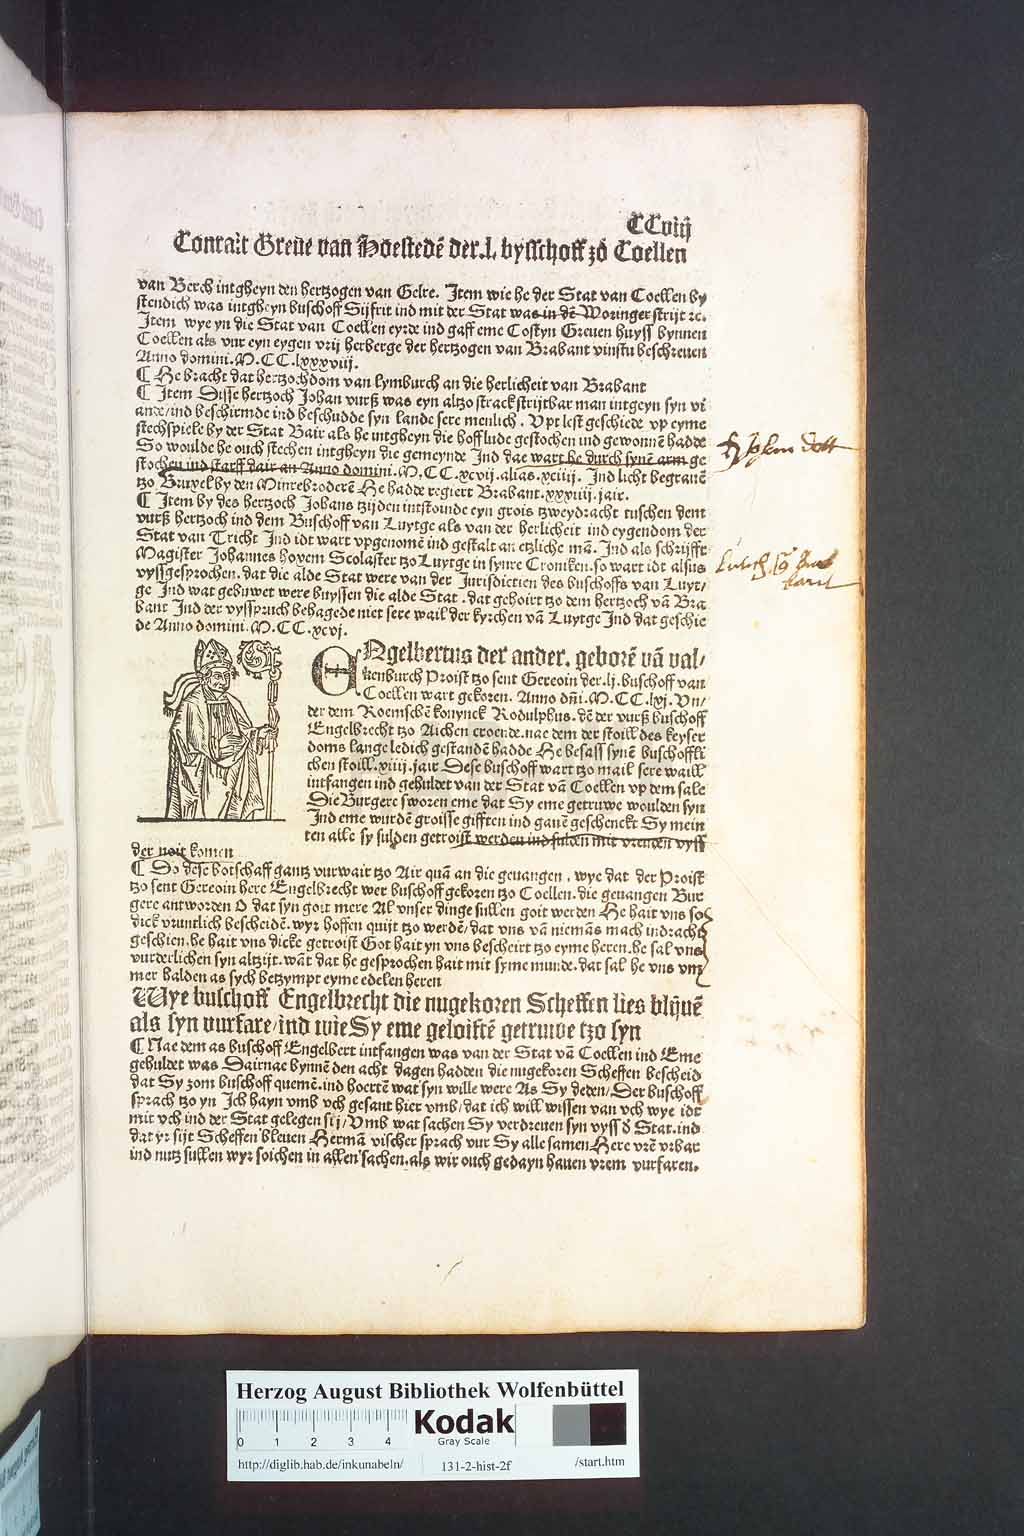 CCviij
Conrait Greue van Hoestedē der .L. bysschoff zo Coellen
van Berch intgheyn den hertzogen van Gelre. Item wie he der Stat van Coellen by
stendich was intgheyn buschoff Sijfrit ind mit der Stat was in dē Woringer strijt ꝛc.
Item wye yn die Stat van Coellen eyrde ind gaff eme Costyn Greuen huyss bynnen
Coellen als vur eyn eygen vrij herberge der hertzogen van Brabant vinstu beschreuen
Anno domini .M.CC.lxxxviij.
¶ He bracht dat hertzochdom van Lymburch an die herlicheit van Brabant
¶ Item Disse hertzoch Johan vurß was eyn altzo strack strijtbar man intgeyn syn vi
ande/ind beschirmde ind beschudde syn lande sere menlich. Vpt lest geschiede vp eyme
stechspiele by der Stat Bair als he intgheyn die hofflude gestochen ind gewonnē hadde
So woulde he ouch stechen intgheyn die gemeynde Ind dae wart he durch synē arm ge
stochen ind starff dair an Anno domini .M.CC.xcvij.alias.xciiij. Ind licht begrauē
tzo Bruxel by den Minrebroderē He hadde regiert Brabant.xxxiiij.jair.
¶ Item by des hertzoch Johans tzijden intstoinde eyn grois tzweydracht tuschen dem
vurß hertzoch ind dem Buschoff van Luytge als van der herlicheit ind eygendom der
Stat van Tricht Ind idt wart vpgenomē ind gestalt an etzliche mā. Ind als schrijfft
Magister Johannes hoyem Scolaster tzo Luytge in synre Croniken. so wart idt alsus
vyssgesprochen. dat die alde Stat were van der Jurisdictien des buschoffs van Luyt/
ge Ind wat gebuwet were buyssen die alde Stat. dat gehoirt tzo dem hertzoch vā Bra
bant Ind der vysspruch behagede niet sere wail der kyrchen vā Luytge Ind dat geschie
de Anno domini .M.CC.xcvj.
ENgelbertus der ander. geborē vā val/
kenburch Proist tzo sent Gereoin der.lj. buschoff van
Coellen wart gekoren. Anno dñi .M.CC.lxj. Vn/
der dem Roemschē konynck Rodulphus. dē der vurß buschoff
Engelbrecht tzo Aichen croende. nae dem der stoill des keyser
doms lange ledich gestandē hadde He besass synē buschoffli
chen stoill.xiiij.jair Dese buschoff wart tzo mail sere waill
intfangen ind gehuldet van der Stat vā Coellen vp dem sale
Die Burgere sworen eme dat Sy eme getruwe woulden syn
Ind eme wurdē groisse gifften ind gauē geschenckt Sy mein
ten alle sy sulden getroist werden ind sulden mit vreuden vyss
der noit komen
¶ Do dese botschaff gantz vurwair tzo Air quā an die geuangen. wye dat der Proist
tzo sent Gereoin here Engelbrecht wer buschoff gekoren tzo Coellen. die geuangen Bur
gere antworden O dat syn goit mere Al vnser dinge sullen goit werden He hait vns so
dick vruntlich bescheidē. wyr hoffen quijt tzo werdē/dat vns vā niemās mach indracht
geschien. he hait vns dicke getroist Got hait yn vns beschert tzo eyme heren. he sal vns
vurderlichen syn altzijt. wāt dat he gesprochen hait mit syme munde. dat sal he vns vm
mer halden as sych betzympt eyme edelen heren
Wye buschoff Engelbrecht die nugekoren Scheffen lies blijuē
als syn vurfare/ind wie Sy eme geloiftē getruwe tzo syn
¶ Nae dem as buschoff Engelbert intfangen was van der Stat vā Coellen ind Eme
gehuldet was Dairnae bynnē den acht dagen hadden die nugekoren Scheffen bescheid
dat Sy zom buschoff quemē. ind hoertē wat syn wille were As Sy deden/Der buschoff
sprach tzo yn Ich hayn vmb vch gesant hier vmb/dat ich will wissen van vch wye idt
mit vch ind der Stat gelegen sij/Vmb wat sachen Sy verdreuen syn vyss d' Stat. ind
dat yr sijt Scheffen bleuen Hermā vischer sprach vur Sy alle samen Here vrē vrbar
ind nutz sullen wyr soichen in allen sachen. als wir ouch gedayn hauen vrem vurfaren.
Herzog August Bibliothek Wolfenbüttel
0 1 2 3 4
Kodak
Gray Scale
http://diglib.hab.de/inkunabeln/ 131-2-hist-2f /start.htm